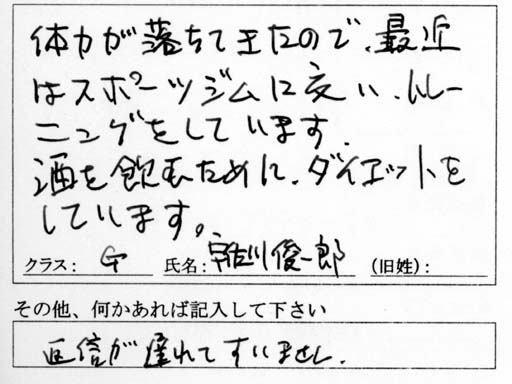 体力が落ちてきたので、最近
はスポーツジムに交い、トレー
ニングをしています。
酒を飲むために、ダイエットを
しています。
クラス: G 氏名: 俊一郎 (旧姓):
その他、何かあれば記入して下さい
返信が遅れてすいません。